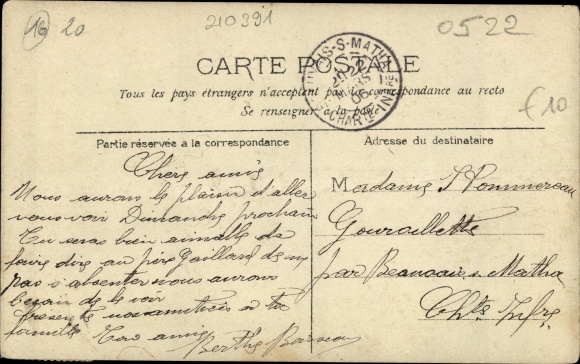 16 20
210391
0522
CARTE POSTALE
Tous les pays étrangers n'acceptent pas la correspondance au recto
Se renseigner à la poste
£10
Partie réservée à la correspondance
Chers amis
Nous aurons le plaisir d'aller
vous voir Dimanche prochain
Tu seras bien aimable de
faire dire au père Gaillard de ne
pas s'absenter nous aurons
besoin de le voir
Présente nos amitiés à ta
famille Ton amie
Berthe
Adresse du destinataire
Madame Pommereau
Gourvillette
par Beauvais s Matha
Chte Infre